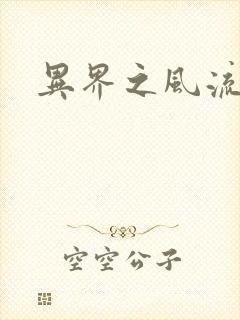 異界之風流
空空公子